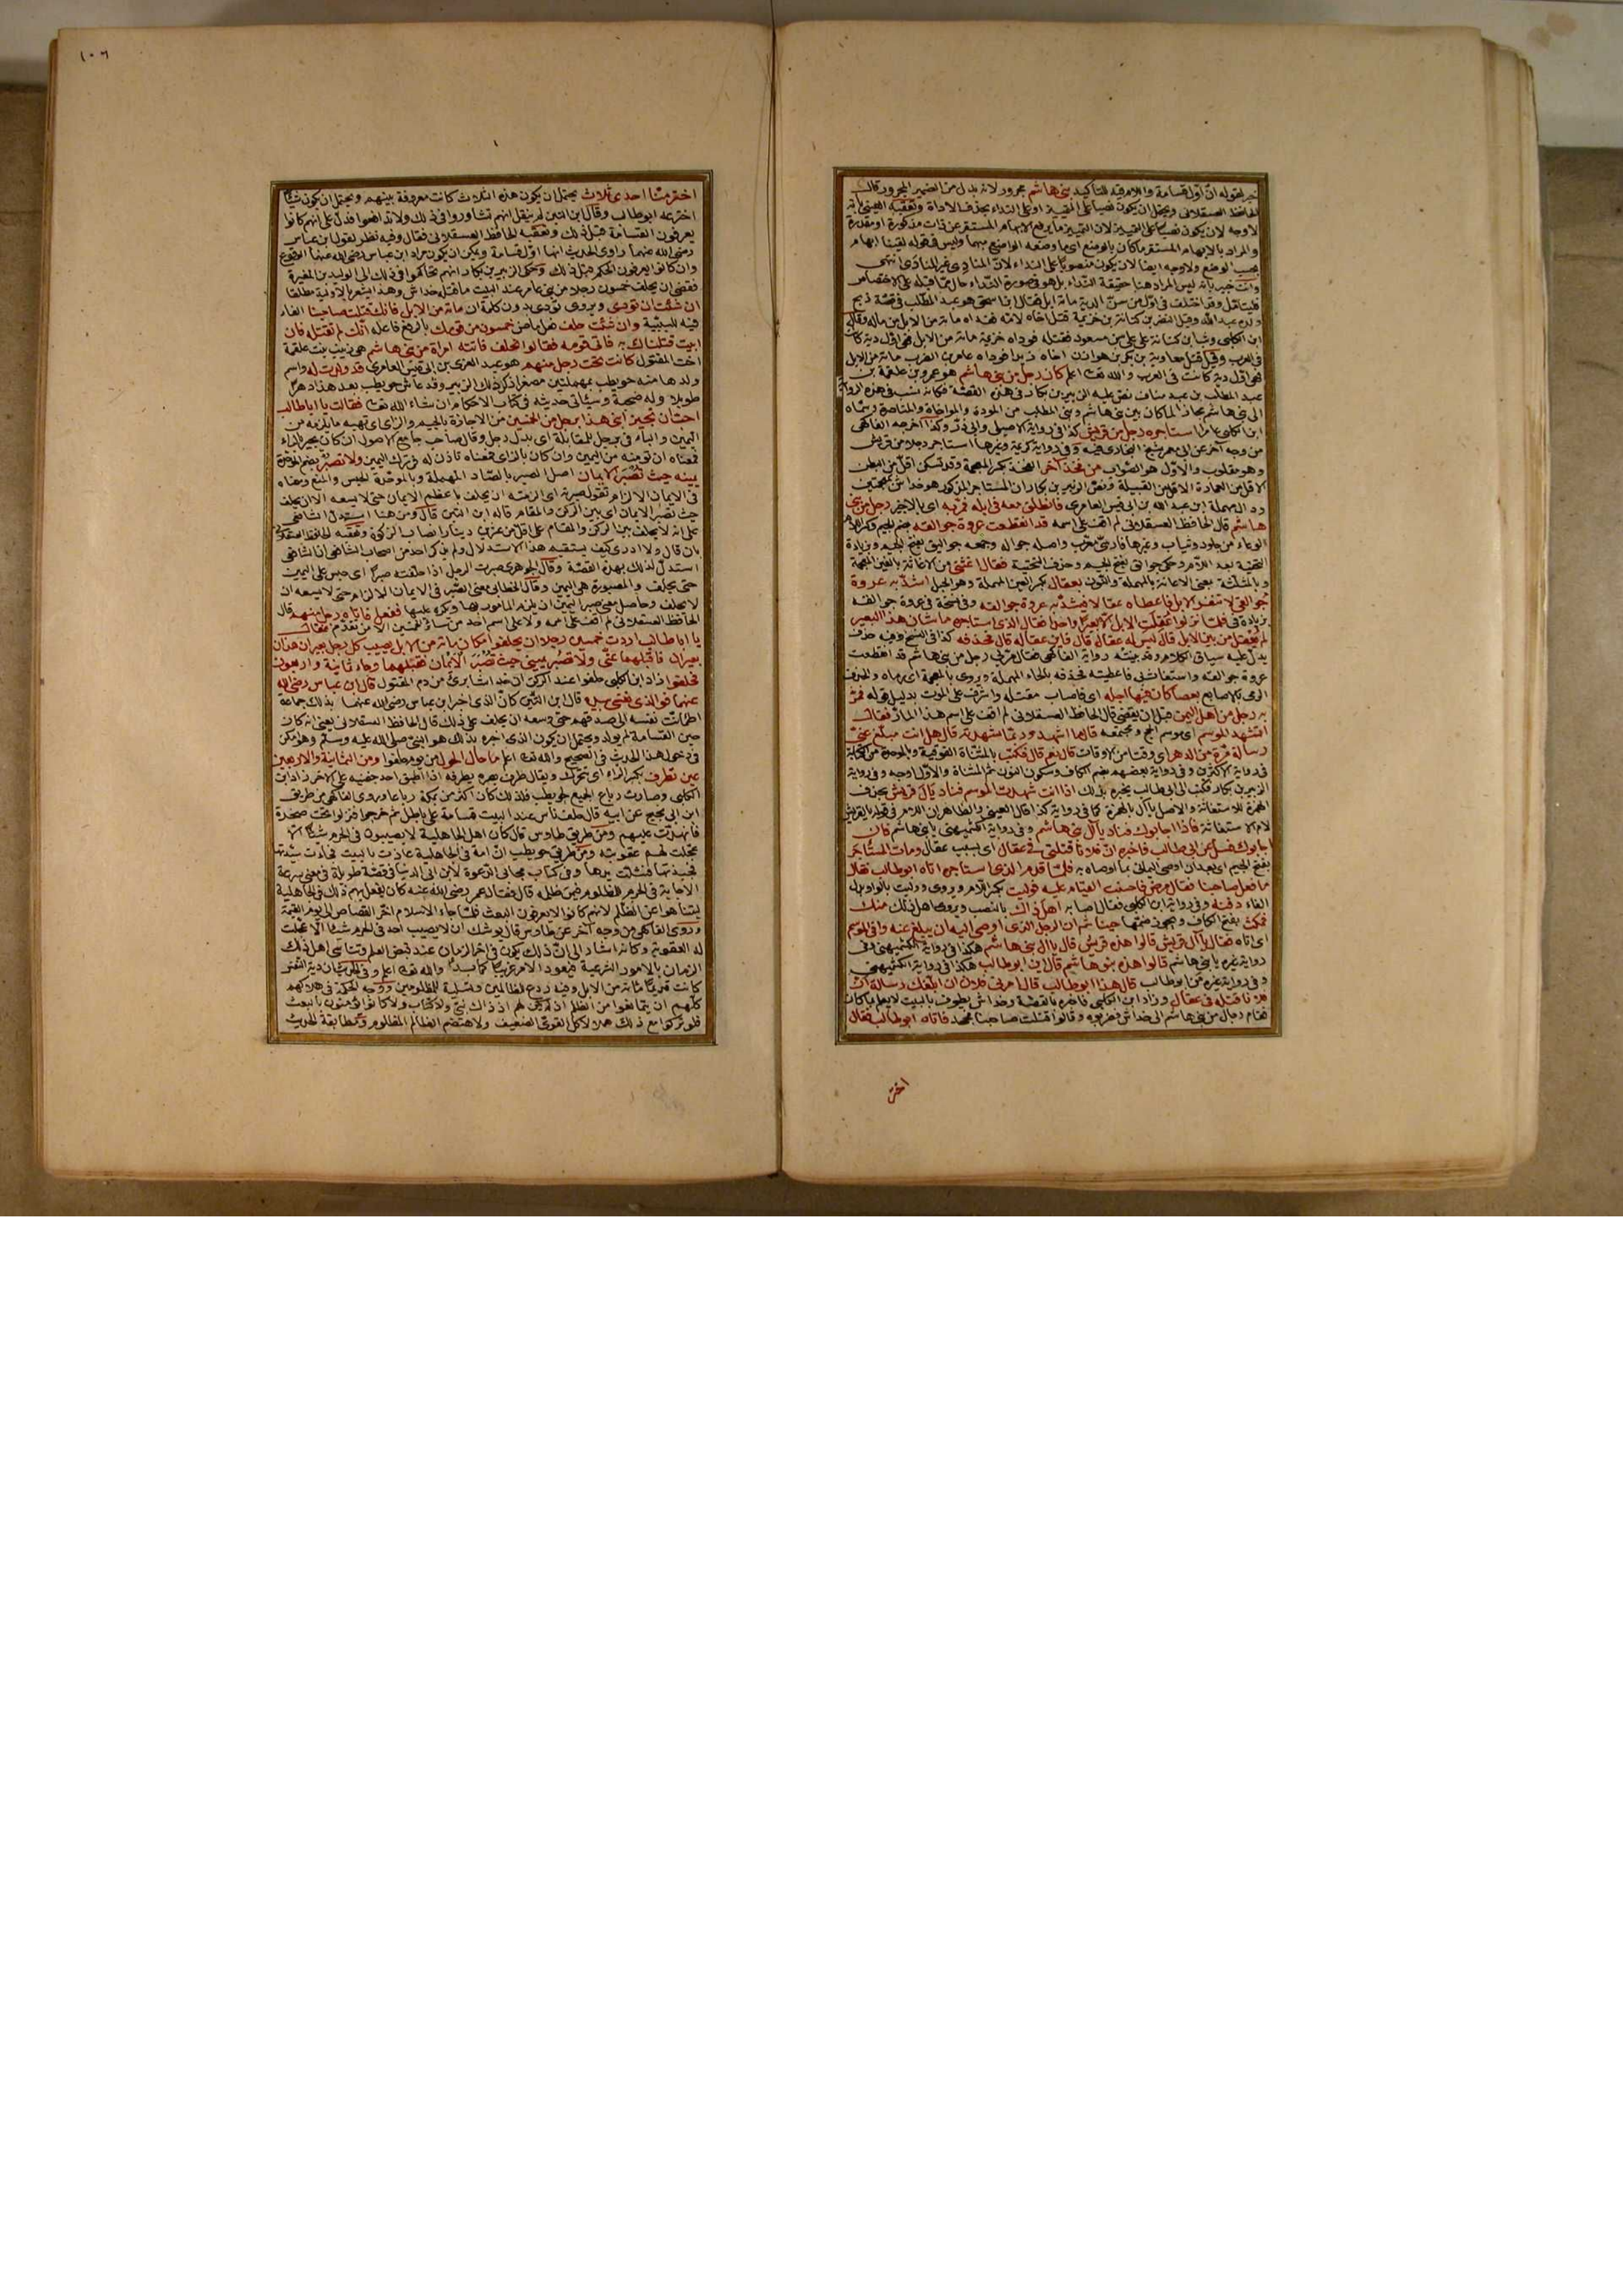 خبر لقوله انّ اوّل قسامة واللام فيه للتأكيد بنى هاشم مجرور لانه بدل من الضمير المجرور قال
الحافظ العسقلانى ويحتمل ان يكون نصبا على التمييز او على النداء بحذف الاداة وتعقبه العينى بانه
لا وجه لان يكون نصبا على التمييز لان التمييز ما يرفع الابهام المستقر عن ذات مذكورة او مقدرة
والمراد بالابهام المستقر ما كان بالوضع اى ما وضعه الواضع مبهما وليس فى قوله لفينا ابهام
بحسب الوضع ولا وجه ايضا لان يكون منصوبا على النداء لانّ المنادِى غير المنادَى انتهى
وانت خبير بانه ليس المراد هنا حقيقة النداء بل هو فى صورة النداء
فليتأمل وقد اختلف فى اوّل من سنّ الدية مائة ابل فقال ابن اسحق هو عبد المطلب فى قصّة ذبح
ولده عبد الله وقيل النضر بن كنانة بن خزيمة قتل اخاه لامّه فوداه مائة من الابل من ماله وقال
ابن الكلبى وثب ابن كنانة على على بن مسعود فقتله فوداه خزيمة مائة من الابل فهى اوّل دية كانت
فى العرب وقيل قتل معاوية بن بكر بن هوازن اخاه زيدا فوداه عامر بن الضرب مائة من الابل
فهى اوّل دية كانت فى العرب والله تعالى اعلم كان رجل من بنى هاشم هو عمرو بن علقمة بن
عبد المطلب بن عبد مناف نصّ عليه الزبير بن بكار فى هذه القصّة فكانه نسب فى هذه الرواية
الى بنى هاشم مجازا لما كان بين بنى هاشم وبنى المطلب من المودة والمواخاة والمناصرة وسماه
ابن الكلبى عامرا استأجره رجل من قريش كذا فى رواية الاصيلى وابى ذر وكذا اخرجه الفاكهى
من وجه آخر عن ابى معمر شيخ البخارى فيه وفى رواية كريمة وغيرها استأجر رجلا من قريش
وهو مقلوب والاول هو الصواب من فخذ آخر الفخذ بكسر المعجمة وقد تسكن اقلّ من البطن
الاقل من العمارة الاقل من القبيلة ونصّ الزبير بن بكار ان المستأجر المذكور هو خداش بمعجمتين
ودال مهملة ابن عبد الله بن ابى قيس العامرى فانطلق معه فى ابله فمرّ به اى بالاجير رجل من بنى
هاشم قال الحافظ العسقلانى لم اقف على اسمه قد انقطعت عروة جوالقه بضم الجيم وكسر اللام
الوعاء من جلود وثياب وغيرها فارسىّ معرّب واصله جواله وجمعه جواليق بفتح الجيم وزيادة
التحتية بعد اللام وحكى جوالق بفتح الجيم وحذف التحتية فقال اغثنى من الاغاثة بالغين المعجمة
وبالمثلثة بمعنى الاعانة بالمهملة والنون بعقال بكسر العين المهملة وهو الحبل اشدّ به عروة
جوالقى لا تنفر الابل فاعطاه عقالا فشدّ به عروة جوالقه وفى نسخة فى عروة جوالقه
بزيادة فى فلمّا نزلوا عُقلت الابل الّا بعيرا واحدا فقال الذى استأجره ما شان هذا البعير
لم يُعقل من بين الابل قال ليس له عقال قال فاين عقاله قال فحذفه كذا فى النسخ وفيه حذف
يدلّ عليه سياق الكلام وقد بيّنته رواية الفاكهى فقال مرّ بى رجل من بنى هاشم قد انقطعت
عروة جوالقه واستغاث بى فاعطيته فحذفه بالحاء المهملة ويروى بالمعجمة اى رماه والحذف
الرمى بالاصابع بعصا كان فيها اجله اى فاصاب مقتله واشرف على الموت بدليل قوله فمرّ
به رجل من اهل اليمن قبل ان يقضى قال الحافظ العسقلانى لم اقف على اسم هذا المارّ فقال
اتشهد الموسم اى موسم الحج ومجتمعه قال ما اشهد وربّما شهدته قال هل انت مبلّغ عنّى
رسالة مرّة من الدهر اى وقتا من الاوقات قال نعم قال فكتب بالمثناة الفوقية وبالموحدة من الكتابة
فى رواية الاكثرين وفى رواية بعضهم بضم الكاف وسكون النون ثم المثناة والاوّل اوجه وفى رواية
الزبير بن بكار فكتب الى ابى طالب يخبره بذلك اذا انت شهدت الموسم فناد يال قريش بحذف
الهمزة للاستغاثة والاصل يا آل بالهمزة كما فى رواية كذا قال العينى والظاهر ان اللام فى قوله يالقريش
لام الاستغاثة فاذا اجابوك فناد يا آل بنى هاشم وفى رواية الكشميهنى يا بنى هاشم فان
اجابوك فسل عن ابى طالب فاخبره انّ فلانا قتلنى فى عقال اى بسبب عقال ومات المستأجَر
بفتح الجيم اى بعد ان اوصى اليمانى بما اوصاه به فلمّا قدم الذى استأجره اتاه ابو طالب فقال
ما فعل صاحبنا فقال مرض فاحسنت القيام عليه فوليت بكسر اللام ويروى ووليت بالواو بدل
الفاء دفنه وفى رواية ابن الكلبى فقال اصابه اهل ذاك بالنصب ويروى اهل ذلك منك
فمكث بفتح الكاف ويجوز ضمّها حينا ثم ان الرجل الذى اوصى اليه ان يبلغ عنه وافى الموسم
اى اتاه فقال يا آل قريش قالوا هذه قريش قال يا ال بنى هاشم هكذا فى رواية الكشميهنى وفى
رواية غيره يا بنى هاشم قالوا هذه بنو هاشم قال اين ابو طالب هكذا فى رواية الكشميهنى
وفى رواية غيره من ابو طالب قال هذا ابو طالب قال امرنى فلان ان ابلغك رسالة انّ
فلانا قتله فى عقال وزاد ابن الكلبى فاخبره بالقصّة وخداش يطوف بالبيت لا يعلم بما كان
فقام رجال من بنى هاشم الى خداش فضربوه وقالوا قتلت صاحبنا فجحد فاتاه ابو طالب فقال
اختر
١٠٦
اختر منّا احدى ثلاث يحتمل ان يكون هذه الثلاث كانت معروفة بينهم ويحتمل ان يكون شيئا
اخترعه ابو طالب وقال ابن التين لم ينقل انهم تشاوروا فى ذلك ولا تدافعوا فدلّ على انهم كانوا
يعرفون القسامة قبل ذلك وتعقبه الحافظ العسقلانى فقال وفيه نظر لقول ابن عباس
رضى الله عنهما راوى الحديث انها اوّل قسامة ويمكن ان يكون مراد ابن عباس رضى الله عنهما الوقوع
وان كانوا يعرفون الحكم قبل ذلك وحكى الزبير بن بكار انهم تحاكموا فى ذلك الى الوليد بن المغيرة
فقضى ان يحلف خمسون رجلا من بنى عامر عند البيت ما قتله خداش وهذا يشعر بالاوّلية مطلقا
ان شئت ان تؤدى ويروى تؤدى بدون كلمة ان مائة من الابل فانك قتلت صاحبنا الفاء
فيه للسببية وان شئت حلف فعل ماض خمسون من قومك بالرفع فاعله انّك لم تقتله فان
ابيت قتلناك به فاتى قومه فقالوا نحلف فاتته امراة من بنى هاشم هى زينب بنت علقمة
اخت المقتول كانت تحت رجل منهم هو عبد العزى بن ابى قيس العامرى قد ولدت له واسم
ولدها منه حويطب بمهملتين مصغرا ذكر ذلك الزبير وقد عاش حويطب بعد هذا دهرا
طويلا وله صحبة وسيأتى حديثه فى كتاب الاحكام ان شاء الله تعالى فقالت يا ابا طالب
احبّ ان تجيز ابنى هذا برجل من الخمسين من الاجازة بالجيم والزاى اى تهبه ما يلزمه من
اليمين والباء فى برجل للمقابلة اى بدل رجل وقال صاحب جامع الاصول ان كان تجير بالراء
فمعناه ان تؤمنه من اليمين وان كان بالزاى فمعناه تأذن له فى ترك اليمين ولا تصبر بضم الموحّدة
يمينه حيث تُصبَر الايمان اصل الصبر بالصّاد المهملة وبالموحّدة الحبس والمنع ومعناه
فى الايمان الالزام تقول صبرته اى الزمته ان يحلف باعظم الايمان حتى لا يسعه الا ان يحلف
حيث تصبر الايمان اى بين الركن والمقام قاله ابن التين قال ومن هنا استدل الشافعى
على انه لا يحلف بين الركن والمقام على اقل من عشرين دينارا نصاب الزكوة وتعقبه الحافظ العسقلانى
بان قال ولا ادرى كيف يستقيم هذا الاستدلال ولم يذكر احد من اصحاب الشافعى ان الشافعى
استدلّ لذلك بهذه القصّة وقال الجوهرى صبرت الرجل اذا حلّفته صبرا اى حبس على اليمين
حتى يحلف والمصبورة هى اليمين وقال الخطابى معنى الصّبر فى الايمان الالزام حتى لا يسعه ان
لا يحلف وحاصل معنى صبر اليمين ان يلزم المأمور بها ويكره عليها ففعل فاتاه رجل منهم قال
الحافظ العسقلانى لم اقف على اسمه ولا على اسم احد من سائر الخمسين الا من تقدّم فقال
يا ابا طالب اردت خمسين رجلا ان يحلفوا مكان مائة من الابل يصيب كل رجل بعيران هذان
بعيران فاقبلهما عنّى ولا تصبر يمينى حيث تُصبَر الأَيْمان فقبلهما وجاء ثمانية واربعون
فحلفوا زاد ابن الكلبى حلفوا عند الركن ان خداشا برئ من دم المقتول قال ابن عباس رضى الله
عنهما فوالذى نفسى بيده قال ابن التين كانّ الذى اخبر ابن عباس رضى الله عنهما بذلك جماعة
اطمأنّت نفسه الى صدقهم حتى وسعه ان يحلف على ذلك قال الحافظ العسقلانى يعنى انه كان
حين القسامة لم يولد ويحتمل ان يكون الذى اخبره بذلك هو النبىّ صلى الله عليه وسلم وهو امكن
فى دخول هذا الحديث فى الصحيح والله تعالى اعلم ما حال الحول من يوم حلفوا ومن الثمانية والاربعين
عين تطرف بكسر الراء اى تتحرّك ويقال طرف بصره يطرفه اذا اطبق احد جفنيه على الاخر زاد ابن
الكلبى وصارت رباع الجميع لحويطب فلذلك كان اكثر من بمكة رباعا وروى الفاكهى من طريق
ابن ابى نجيح عن ابيه قال حلف ناس عند البيت قسامة على باطل ثم خرجوا فنزلوا تحت صخرة
فانهدمت عليهم ومن طريق طاوس قال كان اهل الجاهلية لا يصيبون فى الحرم شيئا الّا
عجّلت لهم عقوبته ومن طريق حويطب انّ امة فى الجاهلية عاذت بالبيت فجاءت سيّدتها
فجبذتها فشلّت يدها وفى كتاب مجابى الدعوة لابن ابى الدنيا فى قصّة طويلة فى معنى سرعة
الاجابة فى الحرم للمظلوم فيمن ظلمه قال فقال عمر رضى الله عنه كان يفعل بهم ذلك فى الجاهلية
ليتناهوا عن الظلم لانهم كانوا لا يعرفون البعث فلمّا جاء الاسلام اخّر القصاص الى يوم القيمة
وروى الفاكهى من وجه آخر عن طاوس قال يوشك ان لا يصيب احد فى الحرم شيئا الّا عجّلت
له العقوبة وكانه اشار الى انّ ذلك يكون فى آخر الزمان عند قبض العلم وتناسى اهل ذلك
الزمان بالامور الشرعية فيعود الامر غريبا كما بدأ والله تعالى اعلم وفى الحديث ان دية النفس
كانت قديما مائة من الابل وفيه ردع للظالمين وتسلية للمظلومين ووجه الحكمة فى هلاكهم
كلهم ان يتمانعوا من الظلم اذ لم يكن لهم اذ ذاك نبىّ ولا كتاب ولا كانوا يؤمنون بالبعث
فلو تركوا مع ذلك هملا لأكل القوىّ الضعيف ولاهتضم الظالم المظلوم ومطابقة الحديث